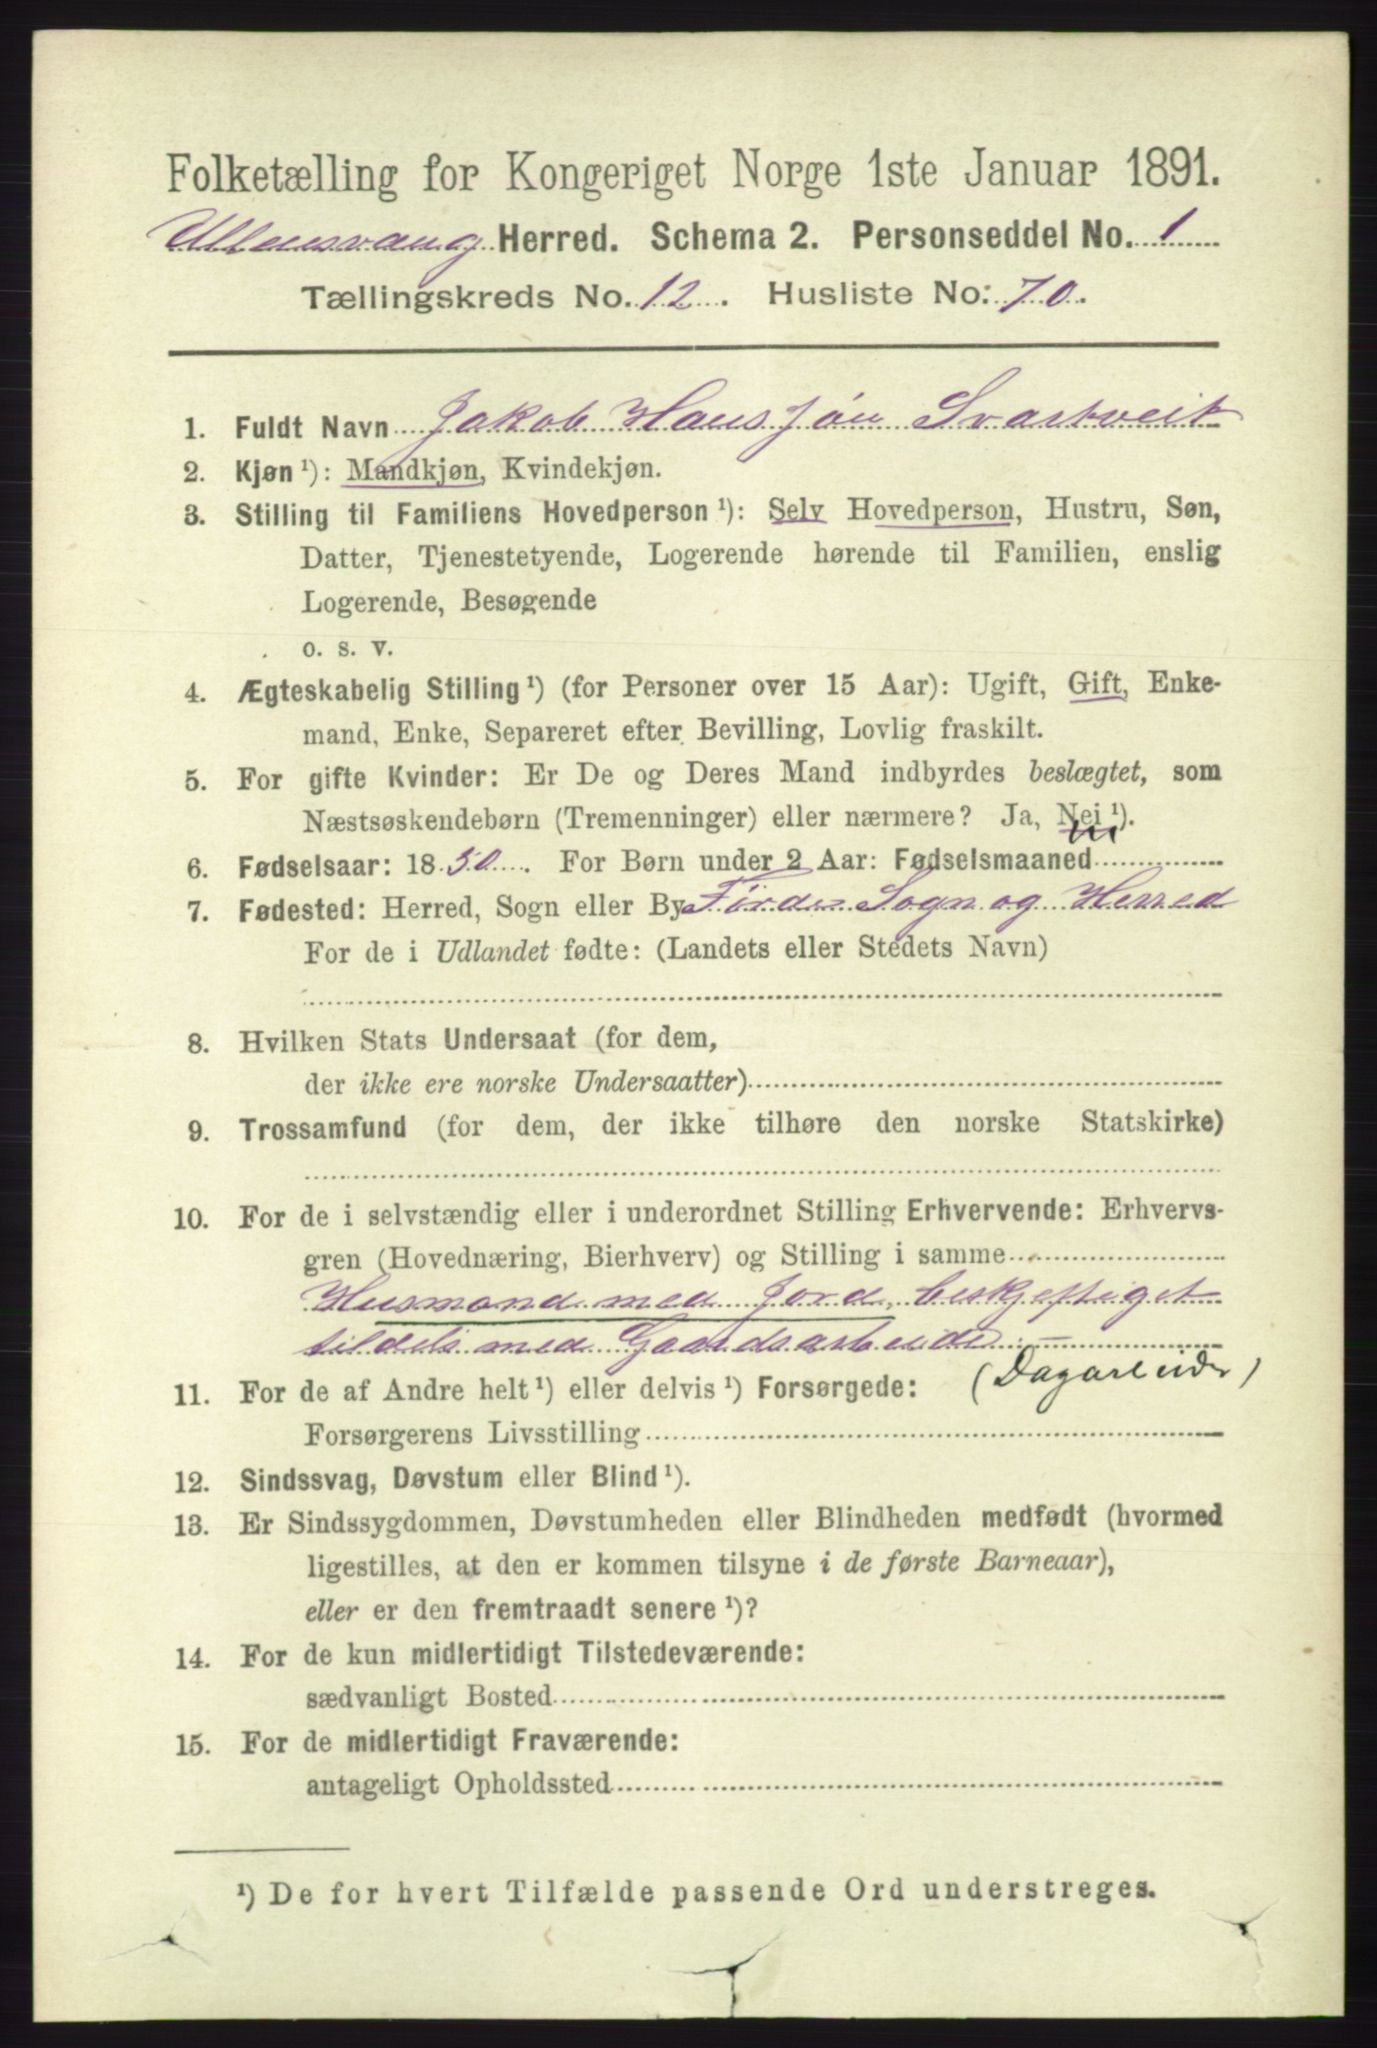 Folketælling for Kongeriget Norge 1ste Januar 1891.
Ullensvang Herred. Schema 2. Personseddel No. 1
Tællingskreds No. 12. Husliste No: 70.
1. Fuldt Navn Jakob Hans Jøn Svartveit
2. Kjøn ¹): Mandkjøn, Kvindekjøn.
3. Stilling til Familiens Hovedperson ¹): Selv Hovedperson, Hustru, Søn,
Datter, Tjenestetyende, Logerende hørende til Familien, enslig
Logerende, Besøgende
o. s. v.
4. Ægteskabelig Stilling ¹) (for Personer over 15 Aar): Ugift, Gift, Enke-
mand, Enke, Separeret efter Bevilling, Lovlig fraskilt.
5. For gifte Kvinder: Er De og Deres Mand indbyrdes beslægtet, som
Næstsøskendebørn (Tremenninger) eller nærmere? Ja, Nei ¹).
6. Fødselsaar: 1850. For Børn under 2 Aar: Fødselsmaaned
7. Fødested: Herred, Sogn eller By Førde Sogn og Herred
For de i Udlandet fødte: (Landets eller Stedets Navn)
8. Hvilken Stats Undersaat (for dem,
der ikke ere norske Undersaatter)
9. Trossamfund (for dem, der ikke tilhøre den norske Statskirke)
10. For de i selvstændig eller i underordnet Stilling Erhvervende: Erhvervs-
gren (Hovednæring, Bierhverv) og Stilling i samme
Husmand med Jord, beskjeftiget
tildels med Gaardsarbeide —
(Dagarbeider)
11. For de af Andre helt ¹) eller delvis ¹) Forsørgede:
Forsørgerens Livsstilling
12. Sindssvag, Døvstum eller Blind ¹).
13. Er Sindssygdommen, Døvstumheden eller Blindheden medfødt (hvormed
ligestilles, at den er kommen tilsyne i de første Barneaar),
eller er den fremtraadt senere ¹)?
14. For de kun midlertidigt Tilstedeværende:
sædvanligt Bosted
15. For de midlertidigt Fraværende:
antageligt Opholdssted
¹) De for hvert Tilfælde passende Ord understreges.